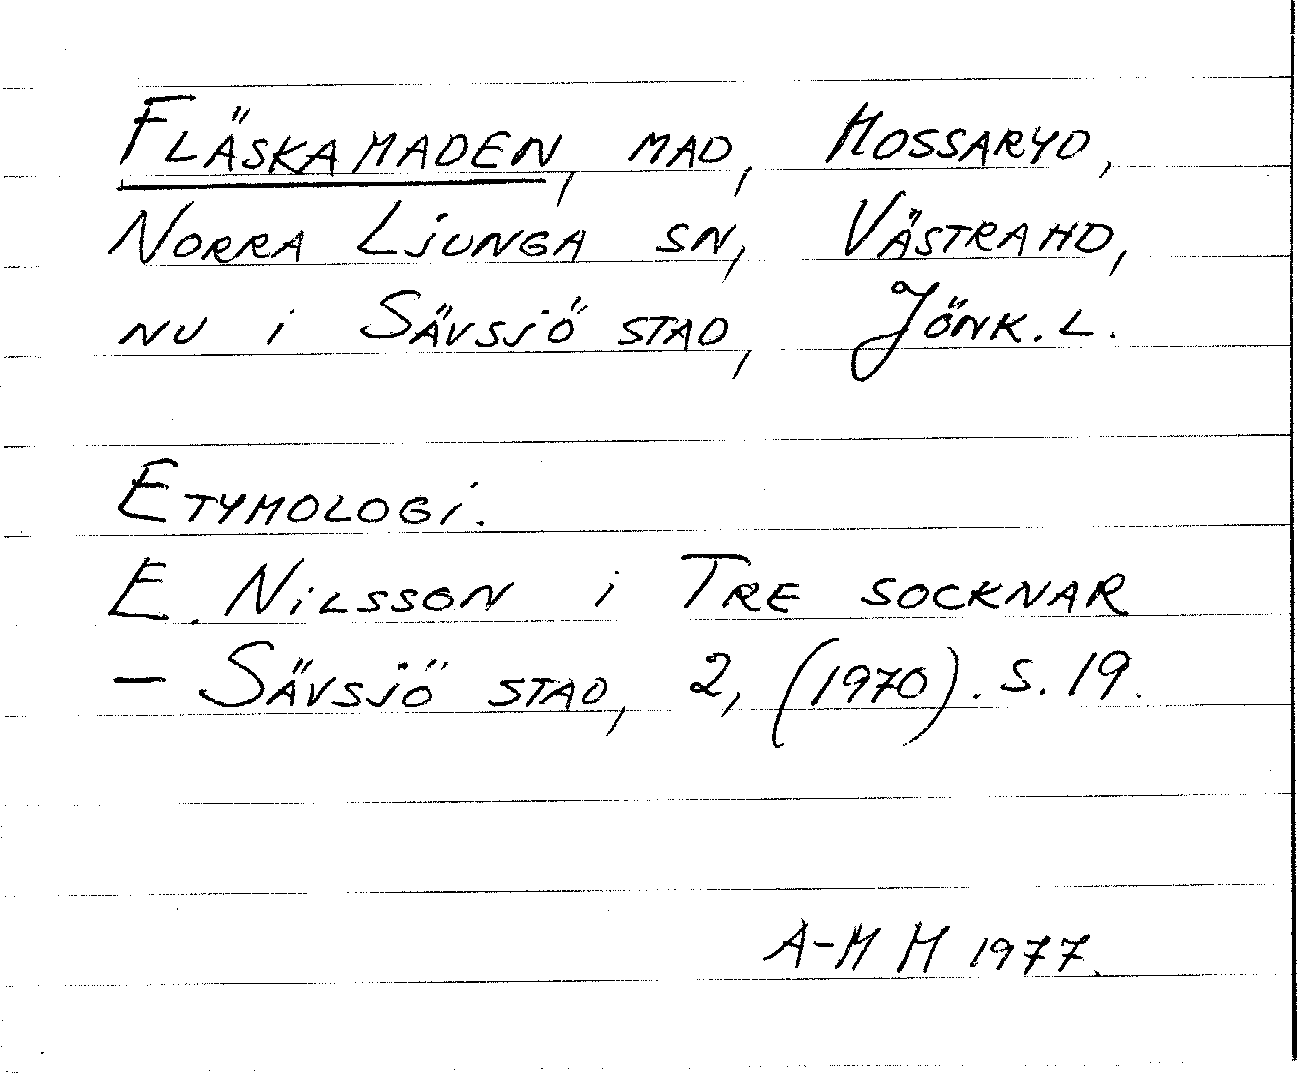 FLÄSKAMADEN, MAD, MOSSARYD,
NORRA LJUNGA SN, VÄSTRA HD,
NU I SÄVSJÖ STAD, JÖNK. L.
ETYMOLOGI.
E. NILSSON I TRE SOCKNAR
– SÄVSJÖ STAD, 2, (1970). S. 19.
A-M H 1977.